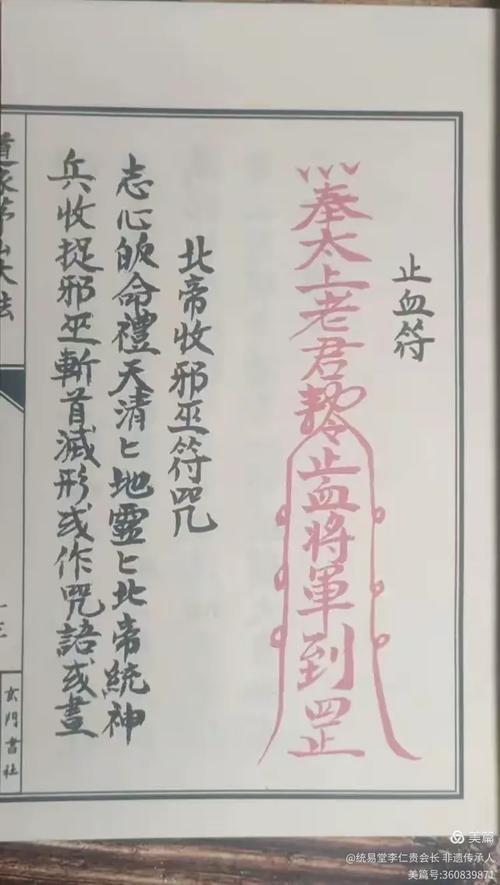 止血符
奉太上老君勅令止血將軍到罡
北帝收邪巫符咒
志心皈命禮天清〻地靈〻北帝統神
兵收捉邪巫斬首滅形或作咒語或畫
玄門書社
美篇
@统易堂李仁贵会长 非遗传承人
美篇号:360839871